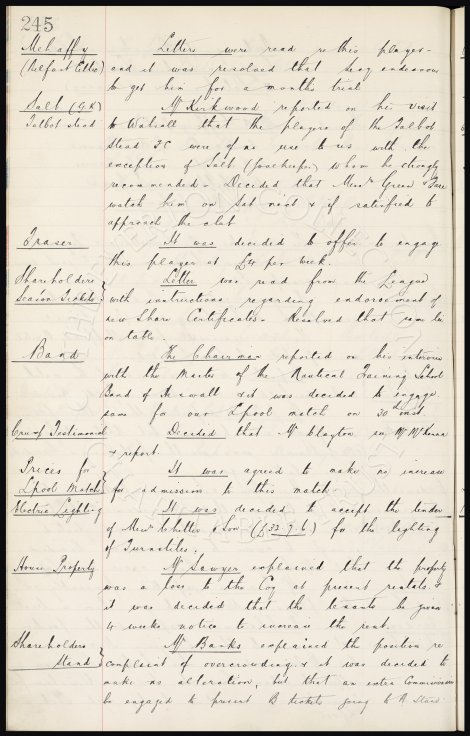 245
Mehaffy Letters were read re this player -
(Belfast Celtic) and it was resolved that Secy endeavour
to get him for a months trial
Salt (G.K) Mr Kirkwood reported on his visit
Talbot Stead to Walsall that the players of the Talbot
Stead F.C were of no use to us with the
exception of Salt (Goalkeeper) whom he strongly
recommended - Decided that Messrs Green &
watch him on Sat next & if satisfied to
approach the club
Fraser It was decided to offer to engage
this player at £4 per week.
Shareholders Letter was read from the League
Season Tickets with instructions regarding endorsement of
new Share Certificates - Resolved that same lie
on table.
Band The Chairman reported on his interview
with the Master of the Nautical Training School
Band of Heswall & it was decided to engage
same for our Lpool match on 30th inst
Testimonial Decided that Mr Clayton see Mr McKenna
& report.
Prices for It was agreed to make no increase
Lpool Match for admission to this match
Electric Lighting It was decided to accept the tender
of Messrs & Son (£33.7.6) for the lighting
of Turnstiles.
House Property Mr Sawyer explained that the property
was a loss to the Coy at present rentals &
it was decided that the tenants be given
4 weeks notice to increase the rent.
Shareholders Mr Banks explained the position re
Stand complaint of overcrowding & it was decided to
make no alteration, but that an extra Commissionaire
be engaged to prevent B tickets going to A Stand